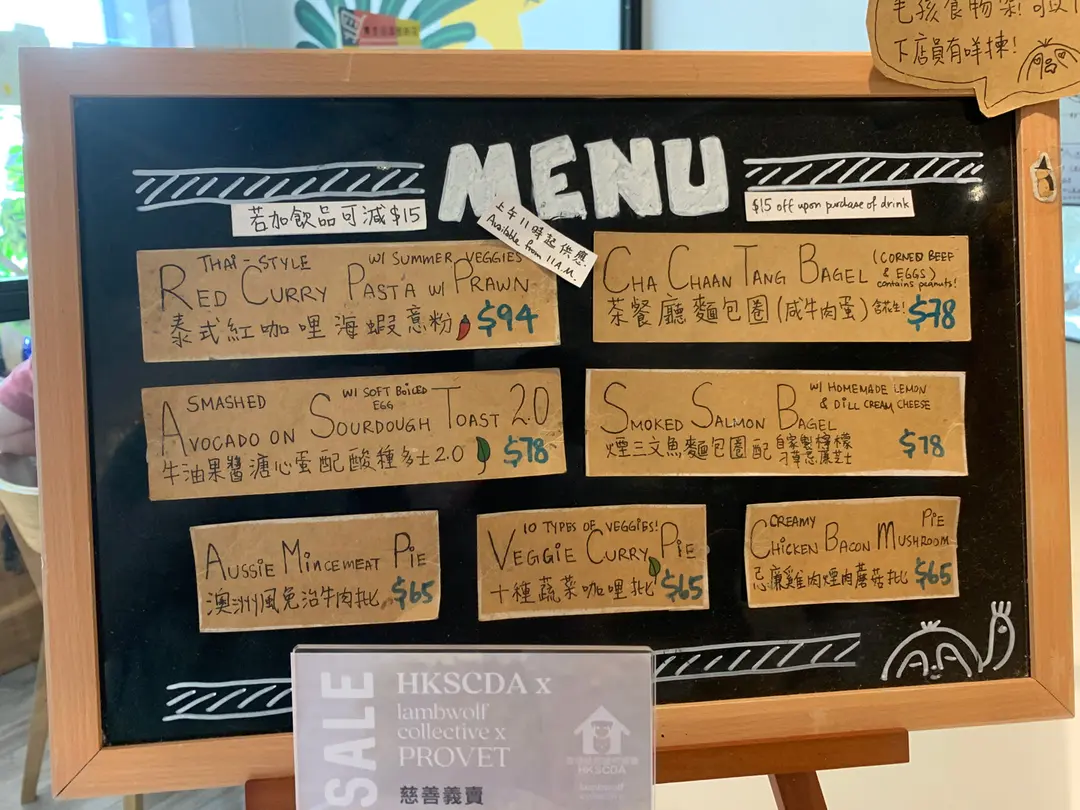 毛孩食物架!可以
下店員有咩揀!
MENU
若加飲品可減$15
$15 off upon purchase of drink
上午11時起供應
Available from 11A.M.
THAI-STYLE W/ SUMMER VEGGIES
RED CURRY PASTA W/ PRAWN
泰式紅咖哩海蝦意粉 $94
CHA CHAAN TANG BAGEL (CORNED BEEF & EGGS) contains peanuts!
茶餐廳麵包圈(咸牛肉蛋)含花生! $78
SMASHED W/ SOFT BOILED EGG
AVOCADO ON SOURDOUGH TOAST 2.0
牛油果醬溏心蛋配酸種多士2.0 $78
W/ HOMEMADE LEMON & DILL CREAM CHEESE
SMOKED SALMON BAGEL
煙三文魚麵包圈配自家製檸檬刁草忌廉芝士 $78
AUSSIE MINCEMEAT PIE
澳洲風免治牛肉批 $65
10 TYPES OF VEGGIES!
VEGGIE CURRY PIE
十種蔬菜咖哩批 $65
CREAMY PIE
CHICKEN BACON MUSHROOM
忌廉雞肉煙肉蘑菇批 $65
SALE
HKSCDA x
lambwolf
collective x
PROVET
慈善義賣
HKSCDA